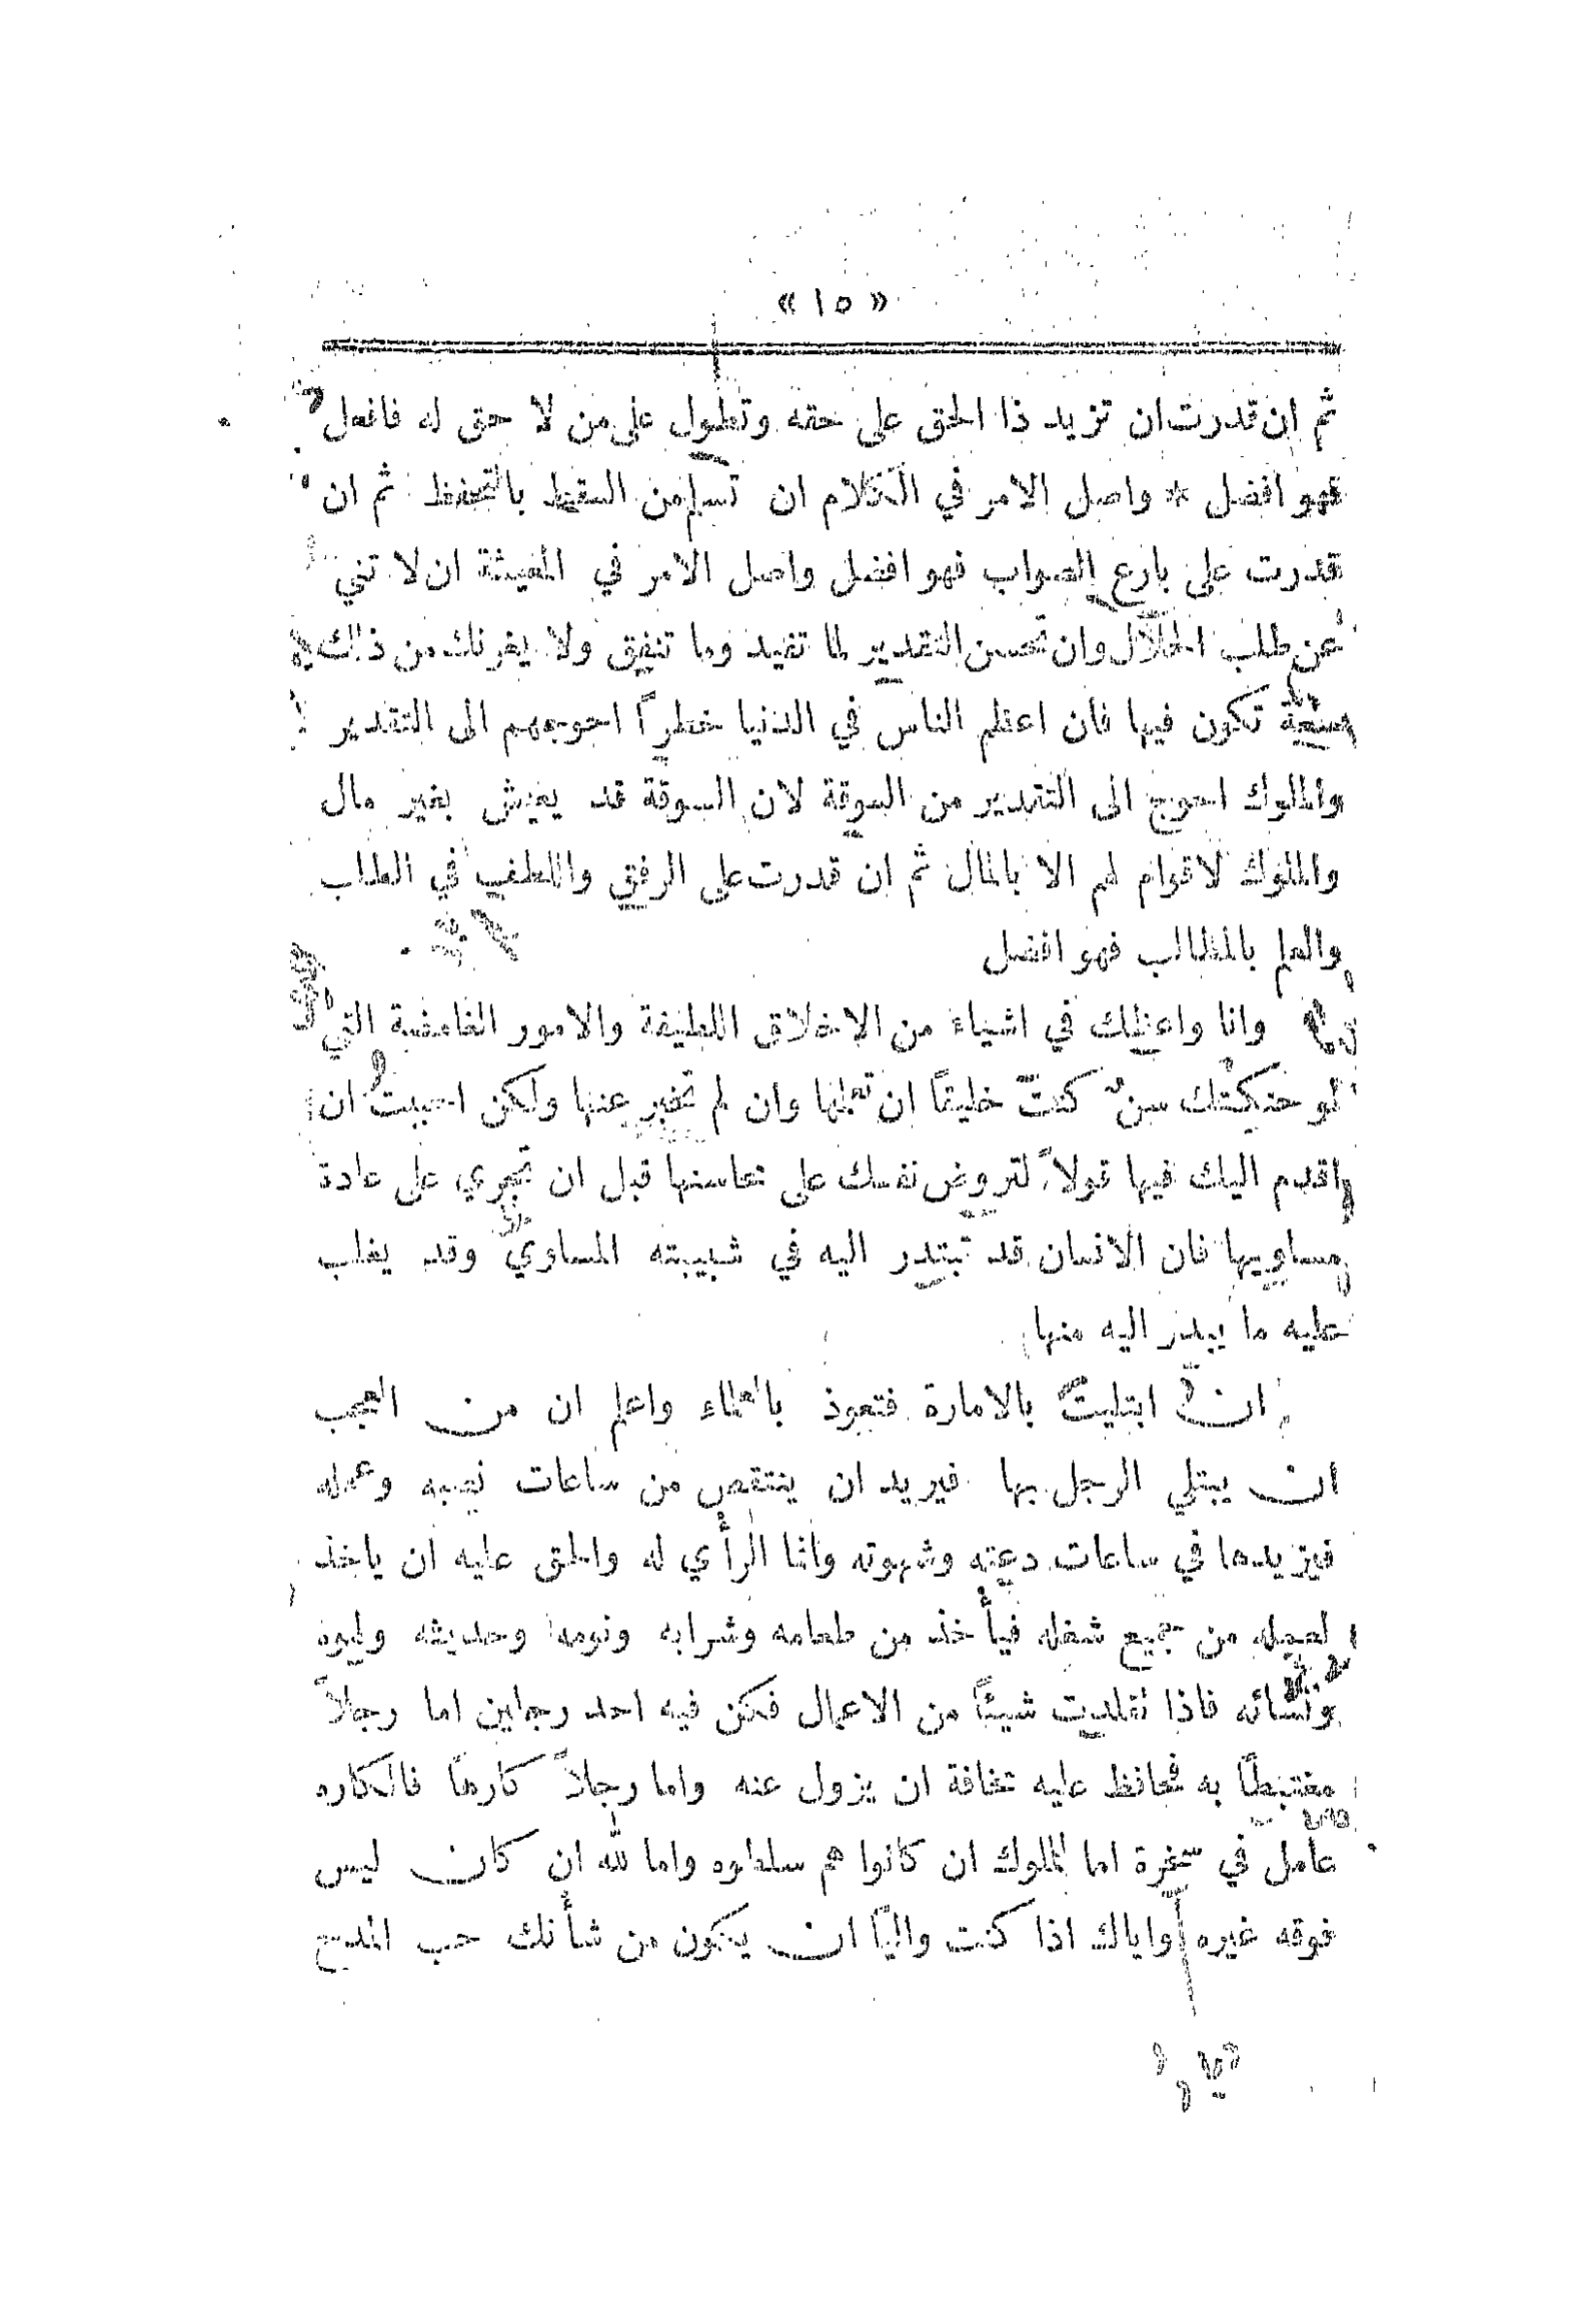 « ١٥ »
ثم ان قدرت ان تزيد ذا الحق على حقه وتطول على من لا حق له فافعل
فهو افضل * واصل الامر في الكلام ان تسلم من السقط بالتحفظ ثم ان
قدرت على بارع الصواب فهو افضل واصل الامر في المعيشة ان لا تني
عن طلب الحلال وان تحسن التقدير لما تفيد وما تنفق ولا يغرنك من ذلك
سعة تكون فيها فان اعظم الناس في الدنيا خطراً احوجهم الى التقدير
والملوك احوج الى التقدير من السوقة لان السوقة قد يعيش بغير مال
والملوك لا قوام لهم الا بالمال ثم ان قدرت على الرفق واللطف في الطلب
والعلم بالمطالب فهو افضل
وانا واعظك في اشياء من الاخلاق اللطيفة والامور الغامضة التي
لو حنكتك سنٌ كنتَ خليقاً ان تعلمها وان لم تخبر عنها ولكن احببتُ ان
اقدم اليك فيها قولاً لتروض نفسك على محاسنها قبل ان تجري على عادة
مساويها فان الانسان قد تبتدر اليه في شبيبته المساوي وقد يغلب
عليه ما يبدر اليه منها
ان ابتليتَ بالامارة فتعوذ بالعلماء واعلم ان من العجب
ان يبتلي الرجل بها فيريد ان ينتقص من ساعات نصبه وعمله
فيزيدها في ساعات دعته وشهوته وانما الرأي له والحق عليه ان ياخذ
لعمله من جميع شغله فيأخذ من طعامه وشرابه ونومه وحديثه ولهوه
ونسائه فاذا تقلدت شيئاً من الاعمال فكن فيه احد رجلين اما رجلاً
مغتبطاً به فحافظ عليه مخافة ان يزول عنه واما رجلاً كارهاً فالكاره
عامل في سخرة اما للملوك ان كانوا هم سلطوه واما لله ان كان ليس
فوقه غيره واياك اذا كنت والياً ان يكون من شأنك حب المدح